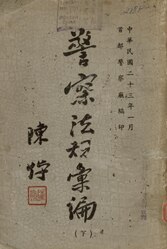 中華民國二十三年一月
首都警察廳編印
警察法規彙編
(下)
陳焯